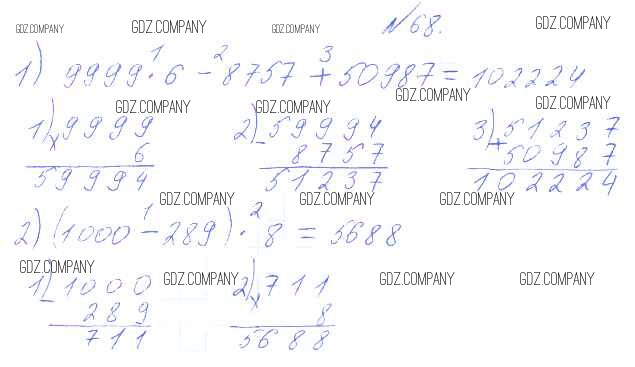 №68.
GDZ.COMPANY GDZ.COMPANY GDZ.COMPANY GDZ.COMPANY
1 2 3
1) 9999·6 - 8757 + 50987 = 102224
GDZ.COMPANY GDZ.COMPANY GDZ.COMPANY GDZ.COMPANY
1) 9999 2) 59994 3) 51237
× 6 - 8757 + 50987
59994 51237 102224
GDZ.COMPANY GDZ.COMPANY GDZ.COMPANY
1 2
2) (1000 - 289) · 8 = 5688
GDZ.COMPANY GDZ.COMPANY GDZ.COMPANY GDZ.COMPANY
1) 1000 2) 711
- 289 × 8
711 5688